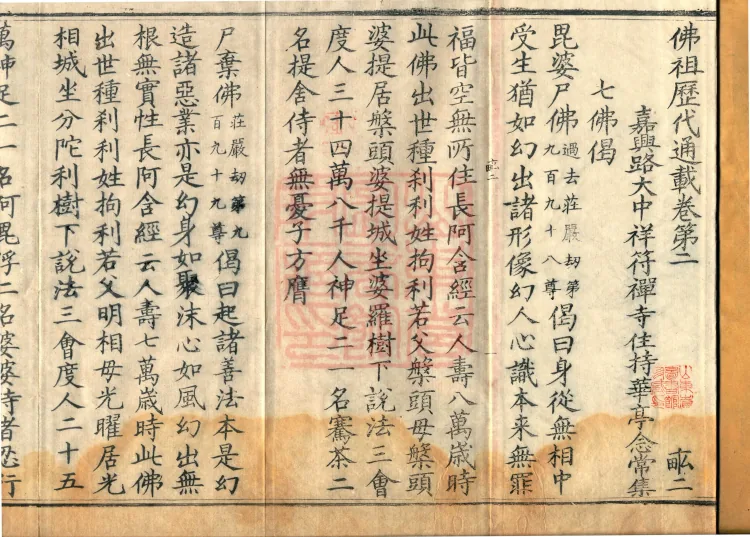 佛祖歷代通載卷第二 畆二
嘉興路大中祥符禪寺住持華亭念常集
七佛偈
毘婆尸佛過去莊嚴劫第九百九十八尊偈曰身從無相中
受生猶如幻出諸形像幻人心識本来無罪
畆二
福皆空無所住長阿含經云人壽八萬歲時
此佛出世種刹利姓拘利若父槃頭母槃頭
婆提居槃頭婆提城坐婆羅樹下說法三會
度人三十四萬八千人神足二一名騫荼二
名提舍侍者無憂子方膺
尸棄佛莊嚴劫第九百九十九尊偈曰起諸善法本是幻
造諸惡業亦是幻身如聚沫心如風幻出無
根無實性長阿含經云人壽七萬歲時此佛
出世種刹利姓拘利若父明相母光曜居光
相城坐分陀利樹下說法三會度人二十五
萬神足二一名阿毘浮二名婆婆侍者忍行